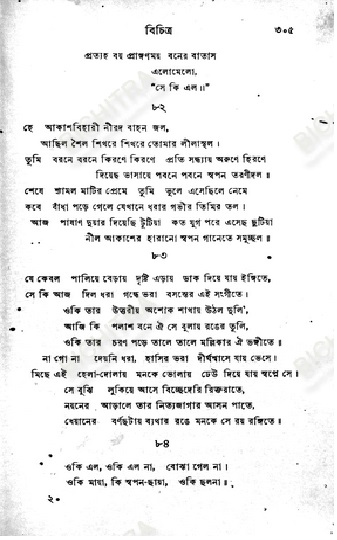 বিচিত্র
৩০৫
প্রত্যহ বয় প্রাঙ্গণময় বনের বাতাস
এলোমেলো,
"সে কি এল॥"
৮২
হে আকাশবিহারী নীরদ বাহন জল,
আছিল শৈল শিখরে শিখরে তোমার লীলাস্থল।
তুমি বরনে বরনে কিরণে কিরণে প্রতি সন্ধ্যায় অরুণে হিরণে
দিয়েছ ভাসায়ে পবনে পবনে স্বপন তরণীদল॥
শেষে শ্যামল মাটির প্রেমে তুমি ভুলে এসেছিলে নেমে
কবে বাঁধা পড়ে গেলে যেখানে ধরার গভীর তিমির তল।
আজ পাষাণ দুয়ার দিয়েছি টুটিয়া কত যুগ পরে এসেছ ছুটিয়া
নীল আকাশের হারানো স্বপন গানেতে সমুচ্ছল॥
৮৩
যে কেবল পালিয়ে বেড়ায় দৃষ্টি এড়ায় ডাক দিয়ে যায় ইঙ্গিতে,
সে কি আজ দিল ধরা গন্ধে ভরা বসন্তের এই সংগীতে।
ওকি তার উত্তরীয় অশোক শাখায় উঠল দুলি',
আজি কি পলাশ বনে ঐ সে বুলায় রঙের তুলি,
ওকি তার চরণ পড়ে তালে তালে মল্লিকার ঐ ভঙ্গীতে॥
না গো না দেয়নি ধরা, হাসির ভরা দীর্ঘশ্বাসে যায় ভেসে।
মিছে এই হেলা-দোলায় মনকে ভোলায় ঢেউ দিয়ে যায় স্বপ্নে সে।
সে বুঝি লুকিয়ে আসে বিচ্ছেদেরি রিক্তরাতে,
নয়নের আড়ালে তার নিত্যজাগার আসন পাতে,
ধেয়ানের বর্ণছটায় ব্যথার রঙে মনকে সে রয় রঙ্গিতে॥
৮৪
ওকি এল, ওকি এল না, বোঝা গেল না।
ওকি মায়া, কি স্বপন-ছায়া, ওকি ছলনা॥
২০